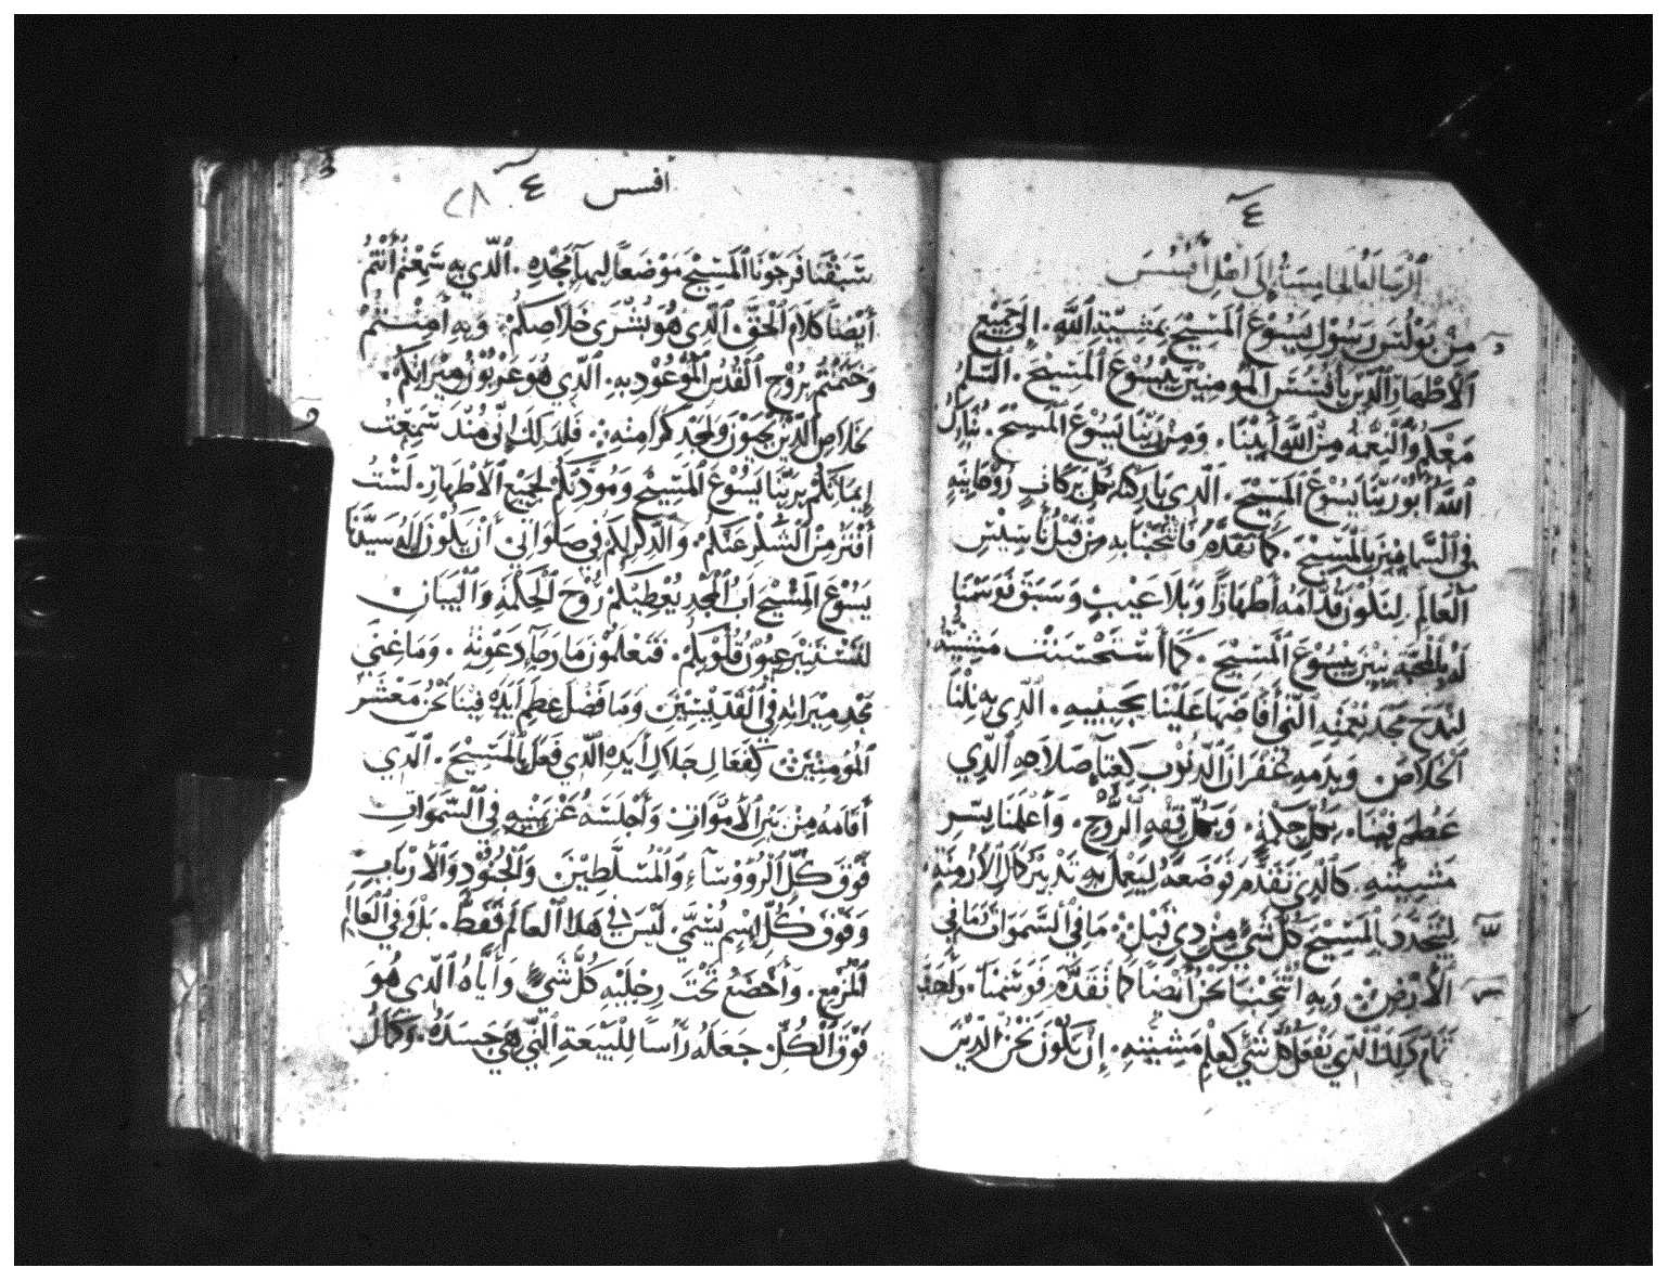 ٤
الرسالة الخامسة إلى أهل أفسس
مِنْ بَوْلُسَ رَسُوْلِ يَسُوْعَ ٱلمَسِيْحَ بمَشِيّةِ ٱللَّهِ. إِلَى جَمِيْعِ
ٱلأطْهَارِ ٱلَّذِيْنَ بأفسُسَ ٱلمُومِنِيْنَ بِيَسُوْعَ ٱلمَسِيْحَ. ٱلسَّلمُ
مَعَكُم وَٱلنِّعْمَةُ مِنَ ٱللَّهِ أبِيْنَا. وَمِنْ رَبِّنَا يَسُوْعَ ٱلمَسِيْحَ. تَبَارَكَ
ٱللَّهُ أبُوْ رَبِّنَا يَسُوْعَ المَسِيْحَ. ٱلَّذِي بَارَكَنَا بكُلِّ بَرَكَاتٍ رُوْحَانِيَةٍ
فِي ٱلسَّمَا بِٱلمَسِيْحَ. كَمَا تَقَدَّمَ فَٱنْتَخَبَنَا بِهِ مِنْ قَبْلِ تَأسِيْسِ
ٱلعَالَمِ. لِنَكُوْنَ قُدَّامَهُ أطْهَارًا وَبِلَا عَيْبٍ وَسَبَقَ فَوَسَمَنَا
لَهُ بِٱلمَحَبَّةِ بَنِيْنَ بِيَسُوْعَ ٱلمَسِيْحَ. كَمَا ٱسْتَحْسَنَتْ مَشِيَّتُهُ
لِنَمْدَحَ مَجْدَ نِعْمَتِهِ ٱلَّتِي أفَاضَهَا عَلَيْنَا بِحَبِيْبِهِ. ٱلَّذِي بِهِ نِلْنَا
ٱلخَلَاصَ. وَبِدَمِهِ غُفْرَانَ ٱلذُّنُوْبِ كَغِنَآءِ صَلَاحِهِ ٱلَّذِي
عَظُمَ فِيْنَا. بِكُلِّ حِكْمَةٍ. وَبِكُلِّ فِقْهِ ٱلرُّوْحِ. وَأعْلَمَنَا بِسِّرِ
مَشِيَّتِهِ. كَٱلَّذِي تَقَدَّمَ فَوَضَعَهُ لِيَعْمَلَ بِهِ تَدْبِيْرَ كَمَالِ ٱلأزْمِنَةِ.
لِيَتَجَدَّدَ بِٱلمَسِيْحَ كُلُّ شَيْءٍ مِنْ ذِي قَبْلٍ. مَا فِي ٱلسَّمَوَاتِ وَمَا فِي
ٱلأرْضِ. وَبِهِ ٱنْتُخِبْنَا نَحْنُ أيْضًا كَمَا تَقَدَّمَ فَوَسَمَنَا.
تَمَامَ ذَلِكَ ٱلَّذِي يَفْعَلُ كُلَّ شَيْءٍ كَعِلْمِ مَشِيَّتِهِ. إِنْ نَكُوْنَ نَحْنُ ٱلَّذِيْنَ
أفسس ٤ ٢٨
سَبَقْنَا فَرَجَوْنَا ٱلمَسِيْحَ مَوْضَعًا لِبهَآءِ مَجْدِهِ. ٱلَّذِي بِهِ سَمِعْتُم أنْتُمْ
أيْضًا كَلَامَ ٱلْحَقِّ. ٱلَّذِي هُوَ بُشْرَى خَلَاصِكُمْ. وَبِهِ أمِنْتُمْ
وَخُتِمْتُمْ بِرُوْحِ ٱلْقُدُسِ ٱلْمَوْعُوْدِ بِهِ. ٱلَّذِي هُوَ عَرْبُوْنُ مِيْرَاثِكُمْ.
بخَلَاصِ ٱلَّذِيْنَ يَحْيَوْنَ وَلِمَجْدِ كَرَامَتِهِ. فَلِذَلِكَ إِنِّي مُنْذُ سَمِعْتُ
إِيْمَانَكُمْ بِرَبِّنَا يَسُوْعَ ٱلمَسِيْحِ وَمَوَدَّتَكُمْ لِجَمِيْعِ ٱلأطْهَارِ. لَسْتُ
أفْتَرُ مِنَ ٱلشُّكْرِ عَنْكُمْ. وَٱلذِّكْرِ لَكُمْ فِي صَلَوَاتِي. أنْ يَكُوْنَ إِلَهُ سَيِّدِنَا
يَسُوْعَ المَسِيْحَ أبُ ٱلْمَجْدِ يُعْطِيْكُمْ رُوْحَ ٱلْحِكْمَةِ وَٱلْبَيَانِ
لِتَسْتَنِيْرَ عُيُوْنُ قُلُوْبِكُمْ. فَتَعْلَمُوْنَ مَا رَجَآءُ دَعْوَتِهِ. وَمَا غِنَى
مَجْدِ مِيْرَاثِهِ فِي ٱلْقِدِّيْسِيْنَ وَمَا فَضْلُ عِظَمِ أيْدِهِ فِيْنَا نَحْنُ مَعْشَرَ
ٱلمُومِنِيْنَ كَفِعَالِ جَلَالِ أيْدِهِ ٱلَّذِي فَعَلَ بِٱلْمَسِيْحَ. ٱلَّذِي
أقَامَهُ مِنْ بَيْنِ ٱلأَمْوَاتِ وَأجْلَسَهُ عَنْ يَمِيْنِهِ فِي ٱلسَّمَوَاتِ
فَوْقَ كُلِّ ٱلْرُؤوْسَآءِ وَٱلْمُسَلَّطِيْنَ وَٱلْجُنُوْدِ وَٱلأَرْبَابِ
وَفَوْقَ كُلِّ إِسْمٍ يُسَمَّى. لَيْسَ فِي هَذَا ٱلْعَالَمِ فَقَطْ. بَلْ وَفِي ٱلْعَالَمِ
ٱلْمُزْمِعِ. وَأخْضَعَ تَحْتَ رِجْلَيْهِ كُلَّ شَيْءٍ وَأيَّاهُ ٱلَّذِي هُوَ
فَوْقَ ٱلْكُلِّ. جَعَلَهُ رَأسًا لِلْبَيْعَةِ ٱلَّتِي هِيَ جَسَدَهُ. وَكَمَالُ